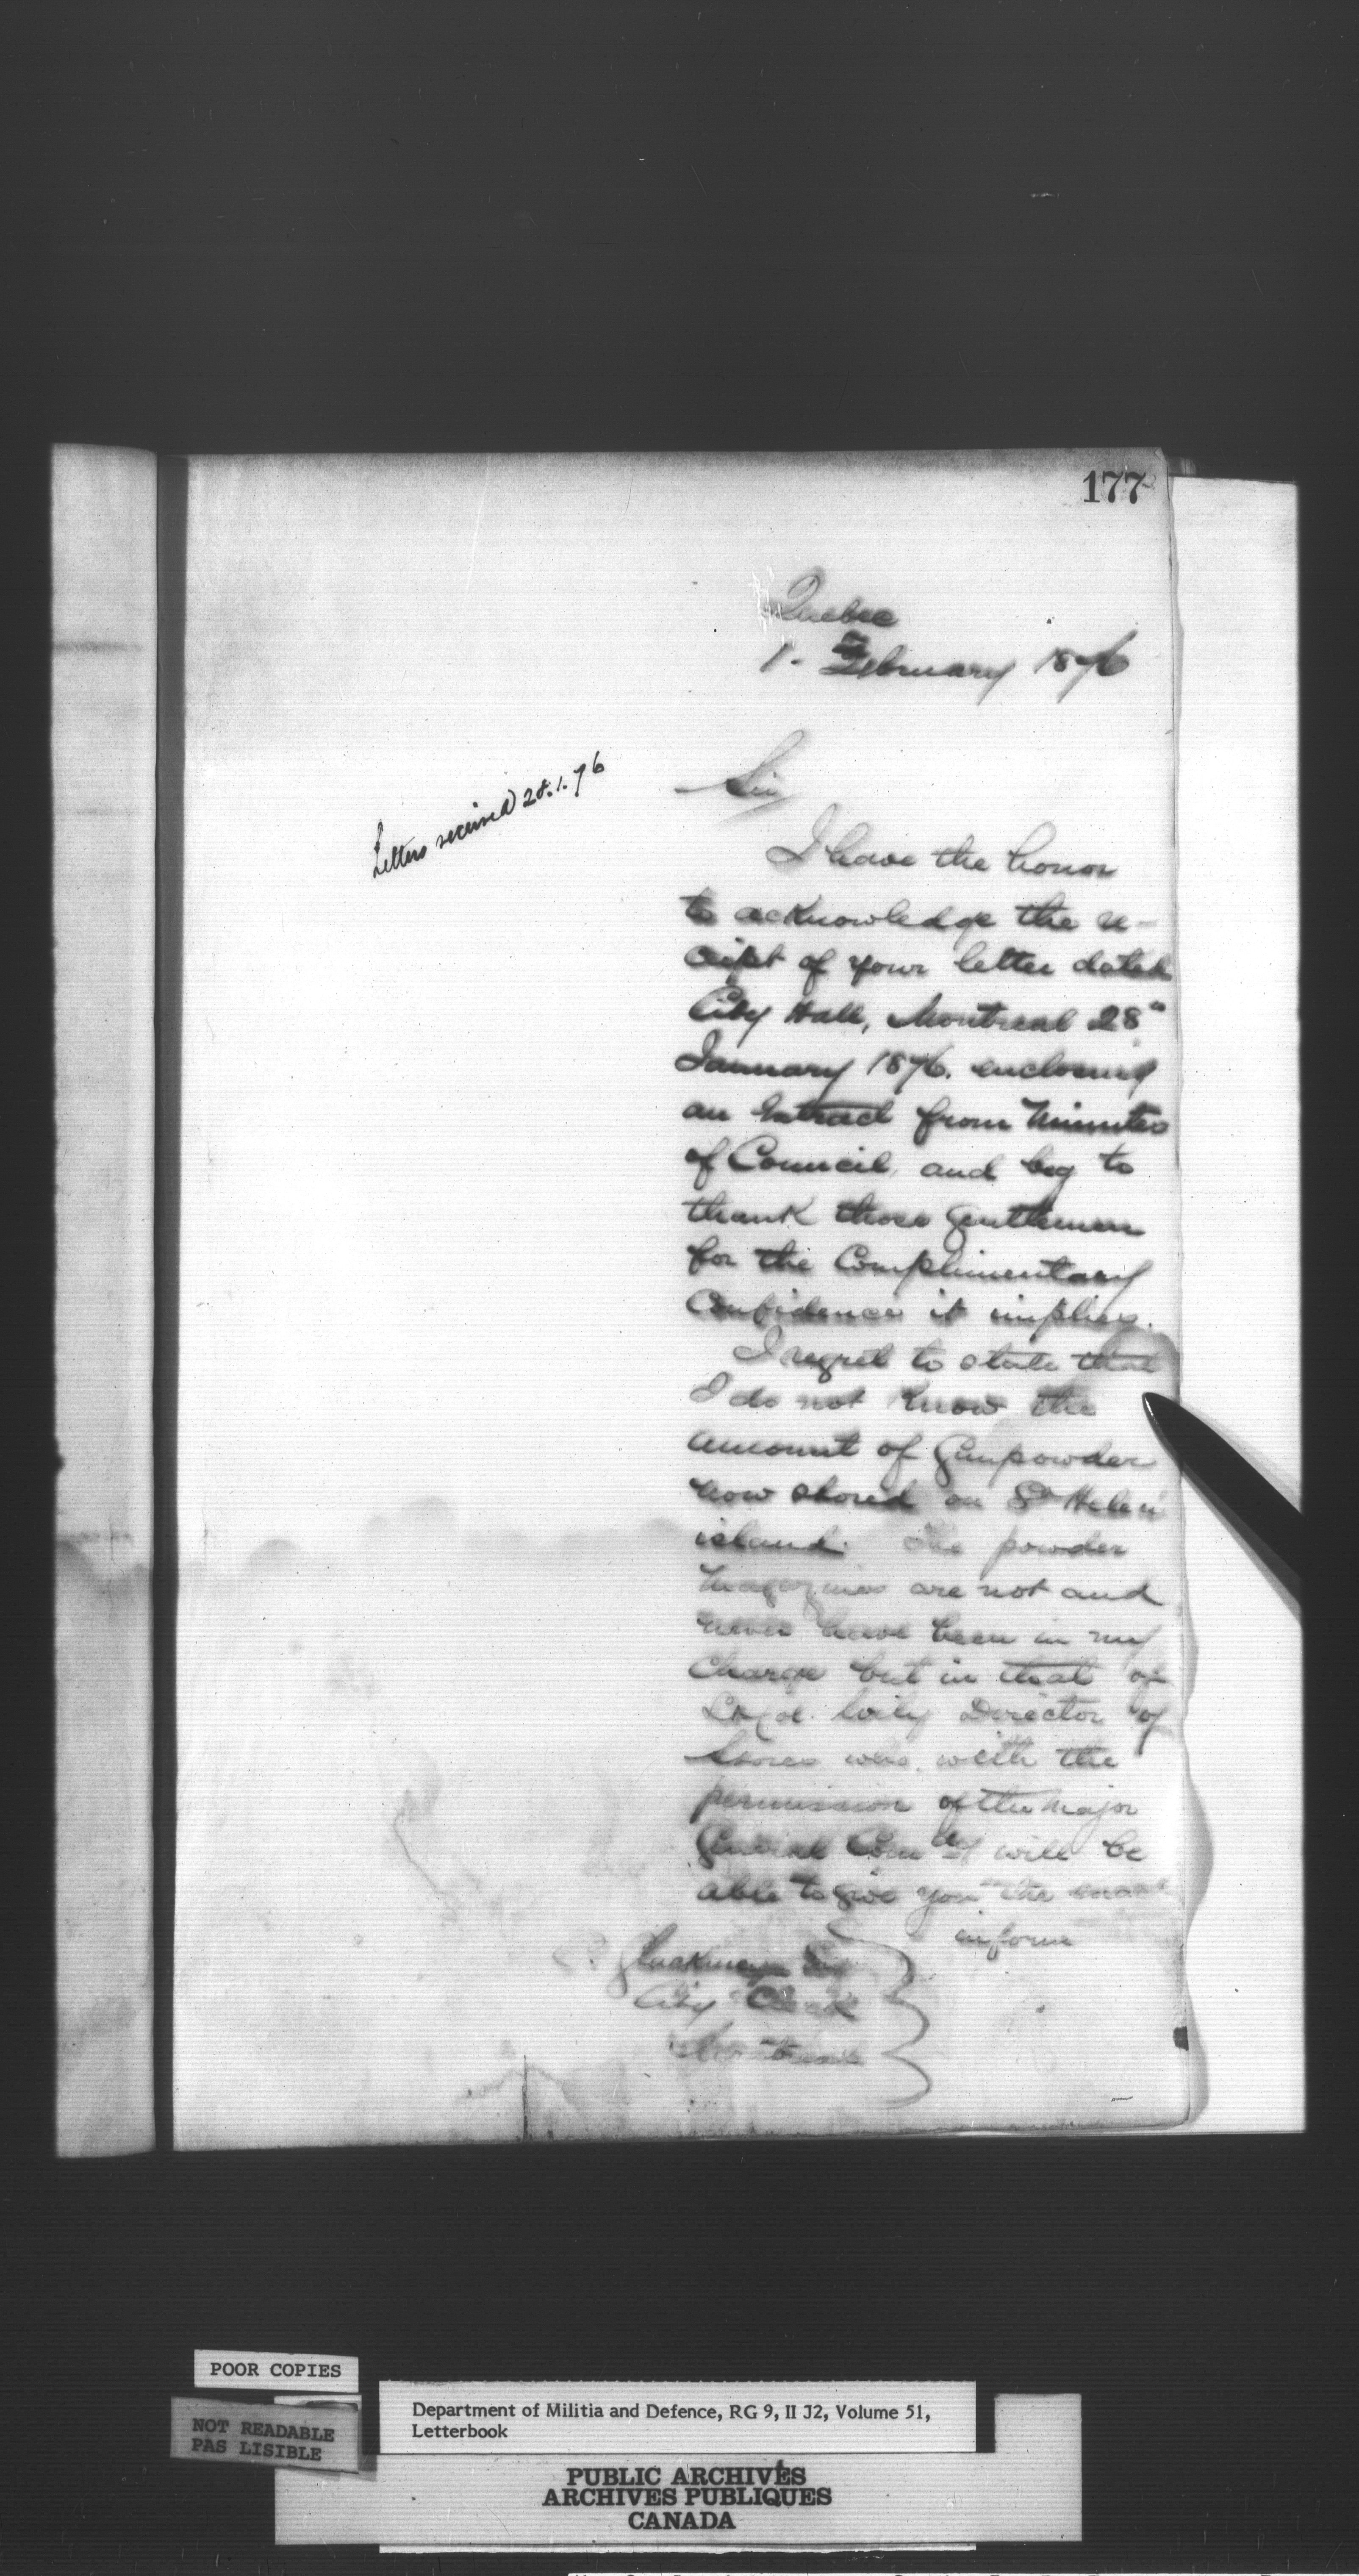 177
Quebec
1. February 1876
Letters received 28.1.76
Sir
I have the honor
to acknowledge the re-
ceipt of your letter dated
City Hall, Montreal 28"
January 1876. enclosing
an Extract from Minutes
of Council, and beg to
thank those Gentlemen
for the Complimentary
Confidence it implies.
I regret to state that
I do not Know the
amount of Gunpowder
now stored on St Helen's
island. The powder
Magazines are not and
never have been in my
Charge but in that of
Lt Col. Wily Director of
Stores who, with the
permission of the Major
General Comdg will be
able to give you the exact
inform
City Clerk
Montreal
POOR COPIES
NOT READABLE
PAS LISIBLE
Department of Militia and Defence, RG 9, II J2, Volume 51,
Letterbook
PUBLIC ARCHIVES
ARCHIVES PUBLIQUES
CANADA